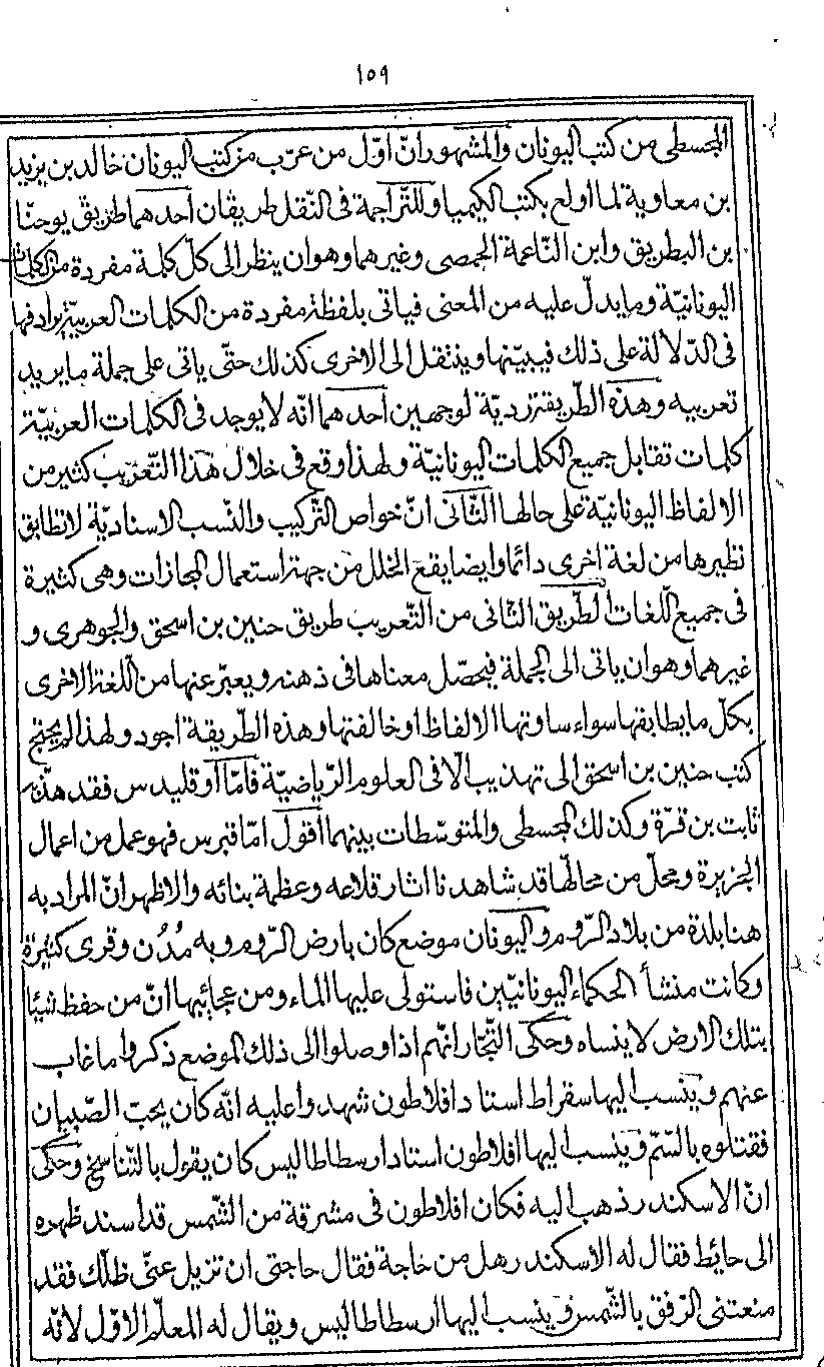 ١٥٩
المجسطى من كتب اليونان والمشهور انّ اوّل من عرّب من كتب اليونان خالد بن يزيد
بن معاوية لما اولع بكتب الكيميا وللتّراجمة فى النّقل طريقان أحدهما طريق يوحنّا
بن البطريق وابن النّاعمة الحمصى وغيرهما وهو ان ينظر الى كلّ كلمة مفردة من الكلمات
اليونانيّة وما يدلّ عليه من المعنى فياتى بلفظة مفردة من الكلمات العربيّة يرادفها
فى الدّلالة على ذلك فيبيّنها وينتقل الى الاخرى كذلك حتّى ياتى على جملة ما يريد
تعريبه وهذه الطّريقة رديّة لوجهين أحدهما انّه لا يوجد فى الكلمات العربيّة
كلمات تقابل جميع الكلمات اليونانيّة ولهذا وقع فى خلال هذا التّعريب كثير من
الالفاظ اليونانيّة على حالها الثّانى انّ خواص التّركيب والنّسب الاسناديّة لا تطابق
نظيرها من لغة اخرى دائما وايضا يقع الخلل من جهة استعمال المجازات وهى كثيرة
فى جميع اللّغات الطّريق الثّانى من التّعريب طريق حنين بن اسحق والجوهرى و
غيرهما وهو ان ياتى الى الجملة فيحصّل معناها فى ذهنه ويعبّر عنها من اللّغة الاخرى
بكلّ ما يطابقها سواء ساوتها الالفاظ او خالفتها وهذه الطّريقة اجود ولهذا لم يحتج
كتب حنين بن اسحق الى تهذيب الّا فى العلوم الرّياضيّة فامّا اوقليدس فقد هذّبه
ثابت بن قرّة وكذلك المجسطى والمتوسّطات بينهما أقول امّا قبرس فهو عمل من اعمال
الجزيرة ومحلّ من محالّها قد شاهدنا اثار قلاعه وعظمة بنائه والاظهر انّ المراد به
هنا بلدة من بلاد الرّوم واليونان موضع كان بارض الرّوم وبه مُدُن وقرى كثيرة
وكانت منشأ الحكماء اليونانيّين فاستولى عليها الماء ومن عجائبها انّ من حفظ شيئا
بتلك الارض لا ينساه وحكى التّجّار انّهم اذا وصلوا الى ذلك الموضع ذكروا ما غاب
عنهم وينسب اليها سقراط استاد افلاطون شهدوا عليه انّه كان يحبّ الصّبيان
فقتلوه بالسّمّ وينسب اليها افلاطون استاد ارسطاطاليس كان يقول بالتّناسخ وحكى
انّ الاسكندر ذهب اليه فكان افلاطون فى مشرقة من الشّمس قد اسند ظهره
الى حائط فقال له الاسكندر هل من حاجة فقال حاجتى ان تزيل عنّى ظلّك فقد
منعتنى الرّفق بالشّمس وينسب اليها ارسطاطاليس ويقال له المعلّم الاوّل لانّه